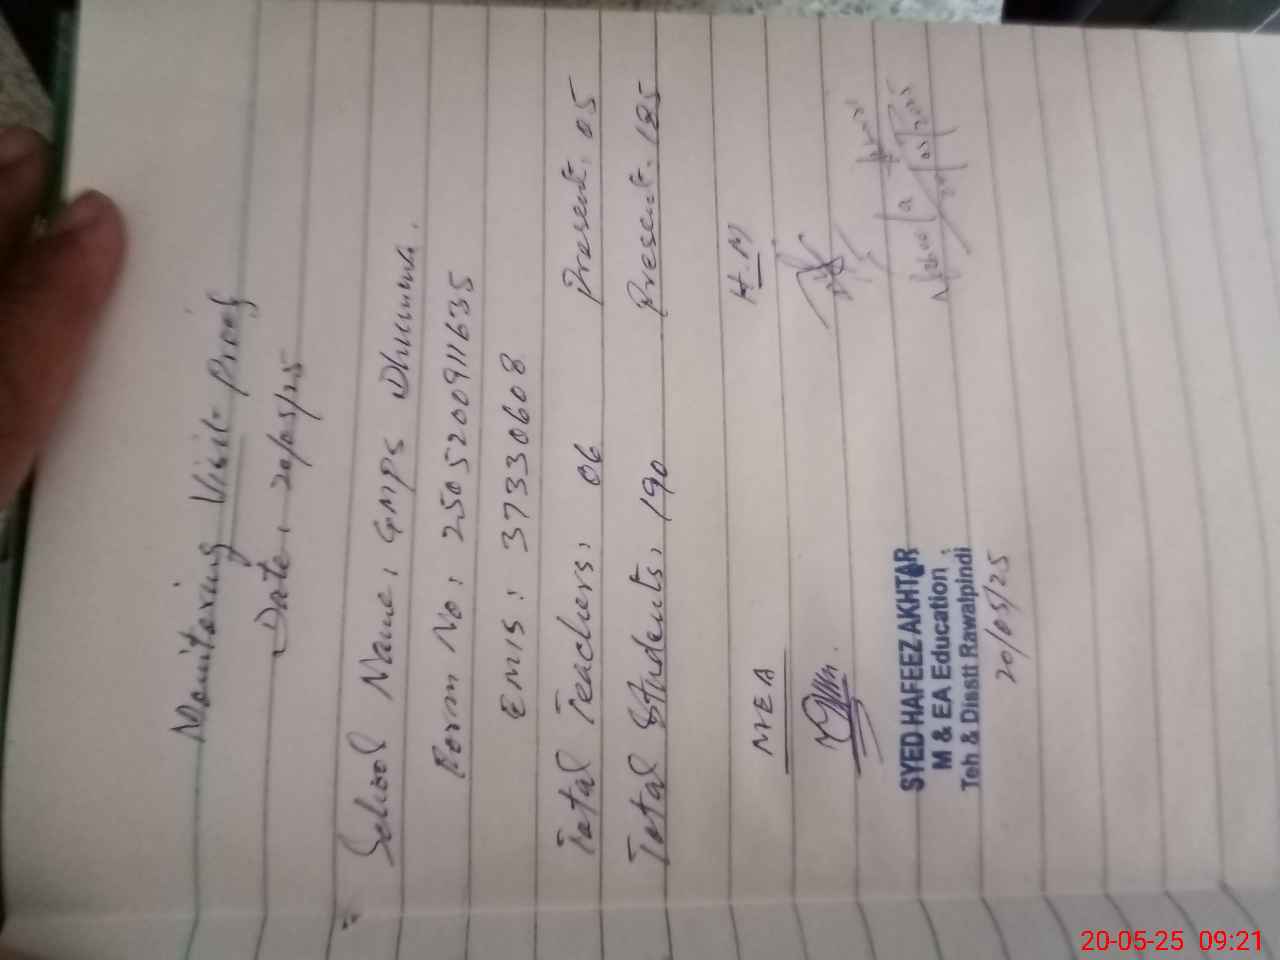 Monitoring Visit Proof
Date: 20/05/25
School Name: GMPS Dhumma.
Form No: 2505200911635
EMIS: 37330608
Total Teachers: 06 Present: 05
Total Students: 190 Present: 185
MEA H.M
SYED HAFEEZ AKHTAR
M & EA Education
Teh & Disstt Rawalpindi
20/05/25
20-05-25 09:21